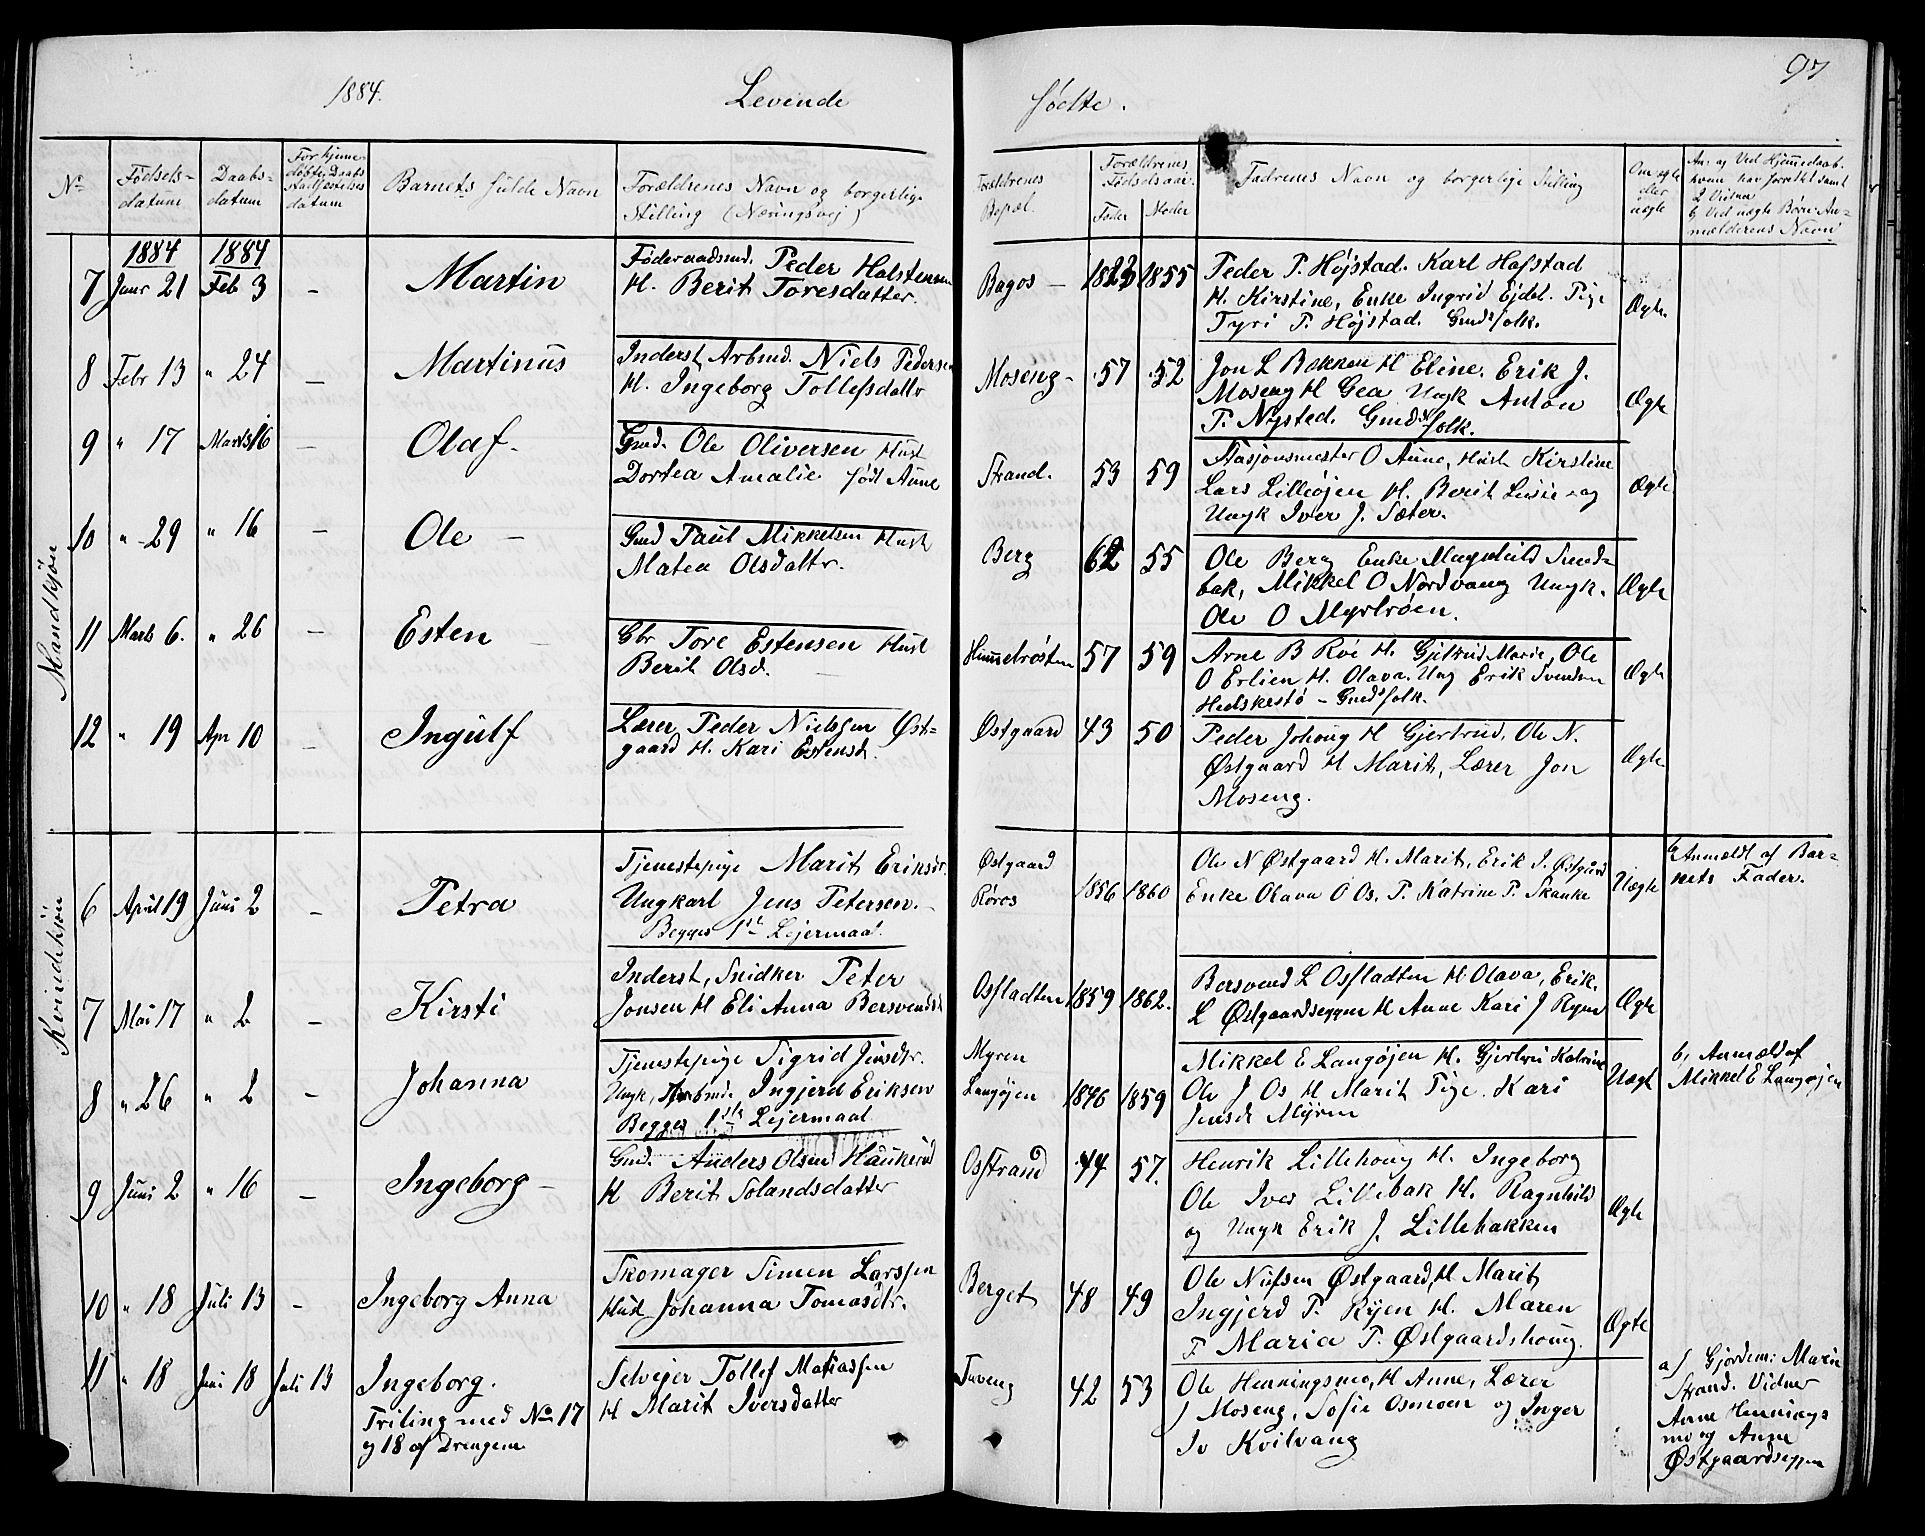 1884.
Levinde
fødte.
97
No
Fødsels-
datum
Daabs-
datum
For hjemme
døbte Daabs
stadfæstelses
datum
Barnets fulde Navn
Forældrenes Navn og borgerlige
Stilling (Næringsvej)
Forældrenes
Bopæl.
Forældrenes
Fødselsaar.
Fader
Moder
Fadrenes Navn og borgerlige Stilling
Om ægte
eller
uægte
An: a, Ved Hjemmedaab
hvem har forrettet samt
2 Vidner
b, Ved uægte Børn An-
mælderens Navn
Mandkjøn
1884
1884
7 Janr 21 Feb 3 – Martin
Føderaadsmd. Peder Halstensen
H. Berit Toresdatter.
Bagos – 1823 1855
Peder P. Højstad. Karl Hafstad
H. Kirstine, Enke Ingrid Ejdet. Pige
Tyri P. Højstad. Gmdsfolk.
Ægte.
8 Febr 13 " 24 – Martinus
Inderst, Arbmd. Niels Pedersen
H. Ingeborg Tollefsdattr
Moseng – 57 52
Jon L Bakken H Eline. Erik J.
Moseng H Gea Ungk Anton
P. Nystad. Gmdsfolk.
Ægte
9 " 17 Marts 16 – Olaf.
Gmd. Ole Oliversen Hust
Dortea Amalie født Aune
Strand. 53 59
Stasjonsmester O Aune, Hust Kirstine
Lars Lilleøjen H. Berit Lusie og
Ungk Iver J. Sæter.
Ægte
10 " 29 " 16 – Ole –
Gmd Paul Mikkelsen Hust
Matea Olsdattr.
Berg 62 55
Ole Berg Enke Magnhild Smed-
bak, Mikkel O Nordvang Ungk.
Ole O Myrtrøen.
Ægte
11 Marts 6. " 26 – Esten –
Gbr Tore Estensen Hust
Berit Olsd. –
Hummelvosten 57 59
Arne B Roe H. Gjertrud Marie, Ole
O Erlien H. Olava. Ung Erik Svendsen
– Gmdsfolk.
Ægte
12 " 19 Apr 10 – Ingulf
Lærer Peder Nielssen Øst-
gaard H. Kari Estensd.
Østgaard 43 50
Peder Johoug H Gjertrud, Ole N.
Østgaard H Marit, Lærer Jon
Moseng.
Ægte
Kvindekjøn
6 April 19 Juni 2 – Petra
Tjenestepige Marit Eriksdr.
Ungkarl Jens Petersen.
Begges 1ste Lejermaal.
Østgaard
Røros 1856 1860
Ole N Østgaard H. Marit, Erik J. Østgård
Enke Olava O Os, P. Katrine P. Skanke
Uægte
b, Anmeldt af Bar-
nets Fader.
7 Mai 17 " 2 – Kirsti
Inderst, Snidker Peter
Jonsen H Eli Anna Bersvendsd
Osfladten 1859 1862.
Bersvend L Osfladten H. Olava, Erik.
L Østgaardseggen H Anne Kari J Ryen
Ægte
8 " 26 " 2 – Johanna
Tjenestepige Sigrid Jensdtr.
Ungk, Arbmd. Ingjerd Eriksen
Begges 1ste Lejermaal
Myren
Langøjen 1846 1859
Mikkel E Langøjen H. Gjertru Katrine
Ole J Os H Marit Pige Kari
Jensdt Myren
Uægte
b, Anmeld af
Mikkel E Langøjen
9 Juni 2 " 16 – Ingeborg –
Gmd. Anders Olsen Haukerød
H Berit Tolandsdatter
Osstrand 44 57.
Henrik Lillehoug H. Ingeborg
Ole Iver Lillebak H. Ragnhild
og Ungk Erik J. Lillebakken
Ægte
10 " 18 Juli 13 – Ingeborg Anna
Skomager Simen Larssen
Hust Johanna Tomasdtr.
Berget 48 49
Ole Nilssen Østgaard, H Marit,
Ingjerd P. Ryen H. Maren
P. Maria P. Østgaardshoug.
Ægte
11 " 18 Juni 18 Juli 13 Ingeborg.
Triling med No 17
og 18 af Drengene
Selvejer Tollef Matiassen
H Marit Iversdatter
Tuveng 42 53
Ole Henningsmo, H Anne, Lærer
J Moseng, Sofie Osmoen og Inger
Iv Kvilvang
a) Gjordem: Marie
Strand. Vidner
Anne Hennings
mo og Anne
Østgaardseggen